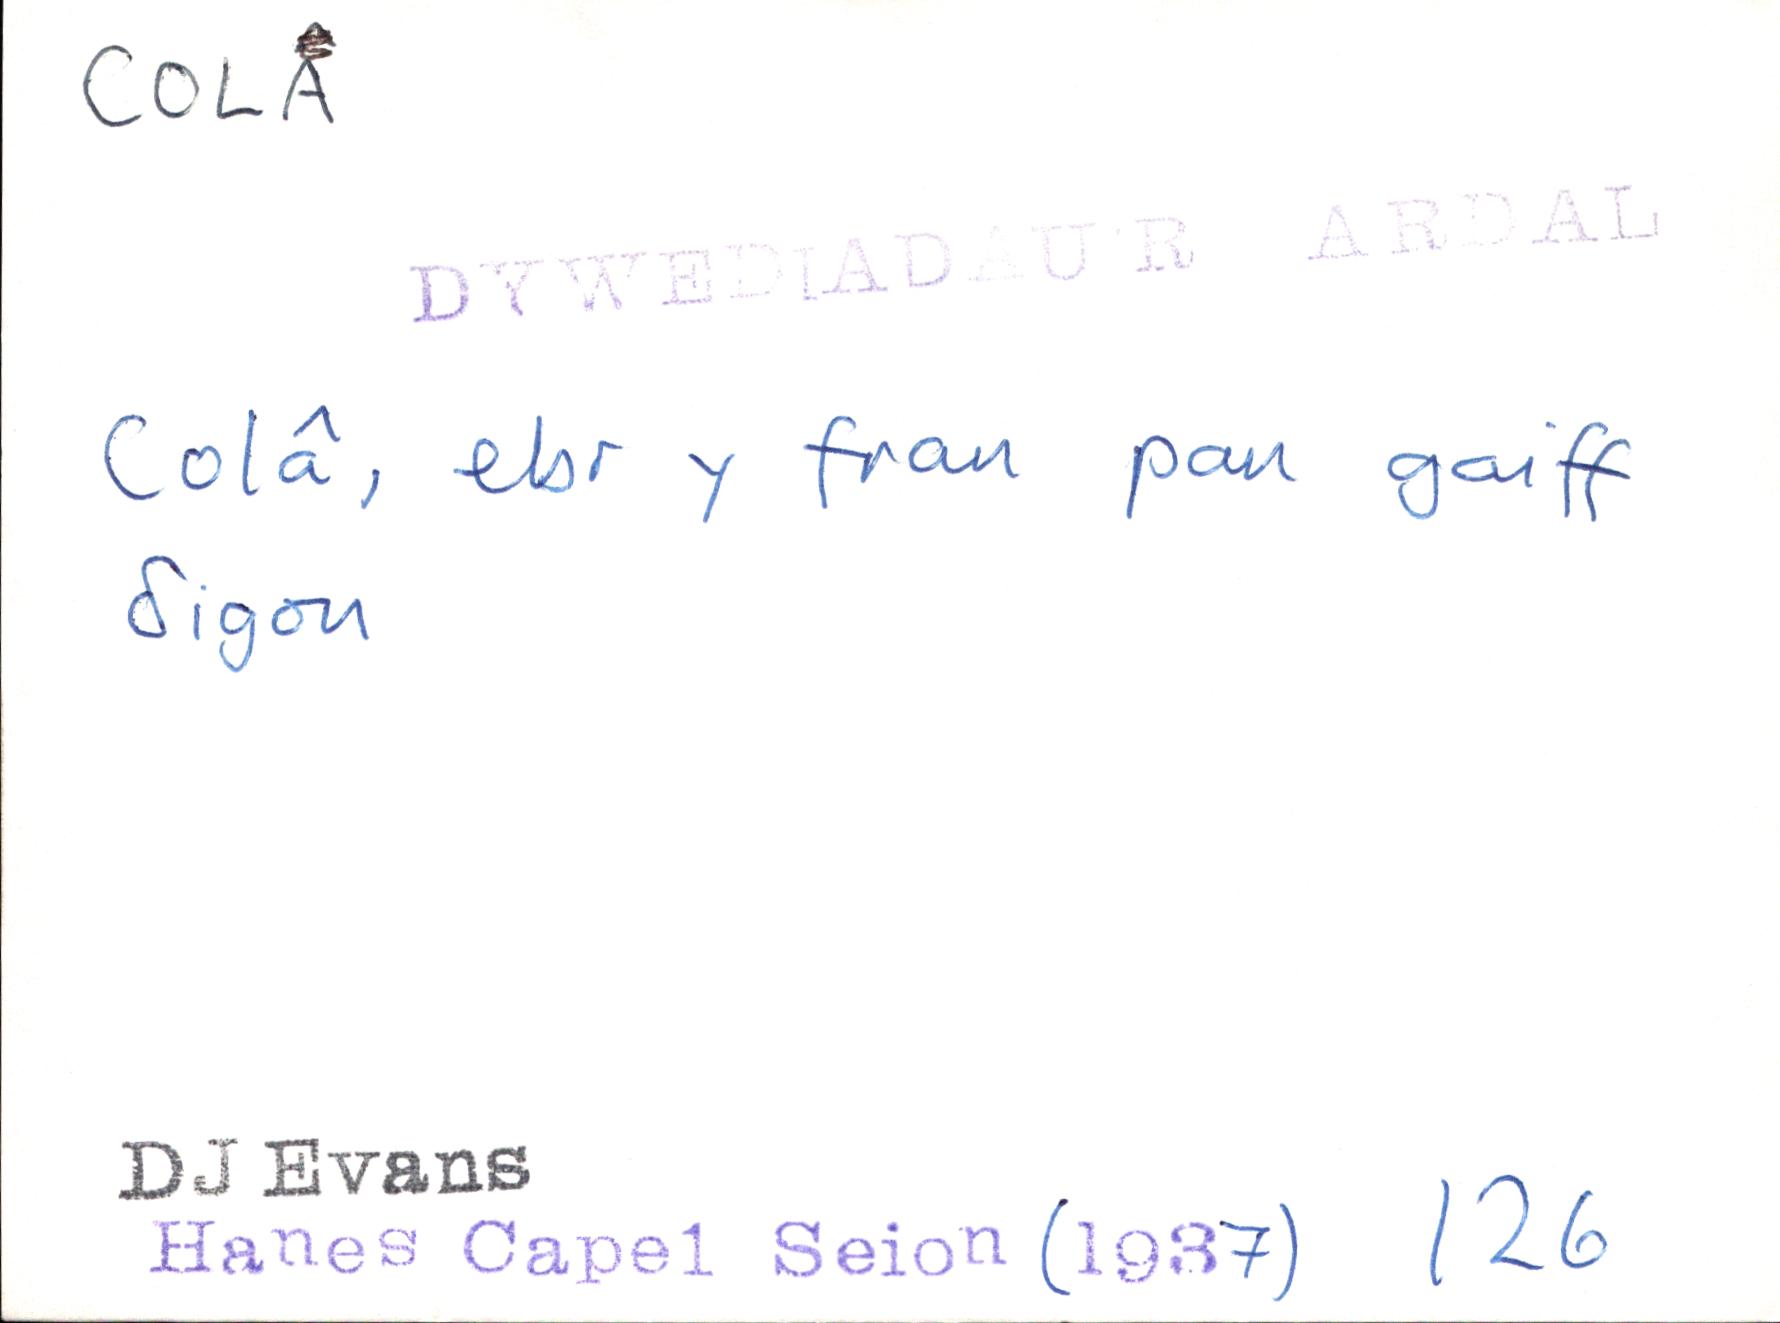 COLÂ
DYWEDIADAU'R ARDAL
Colâ, ebr y fran pan gaiff
δigon
DJ Evans
Hanes Capel Seion (1937) 126